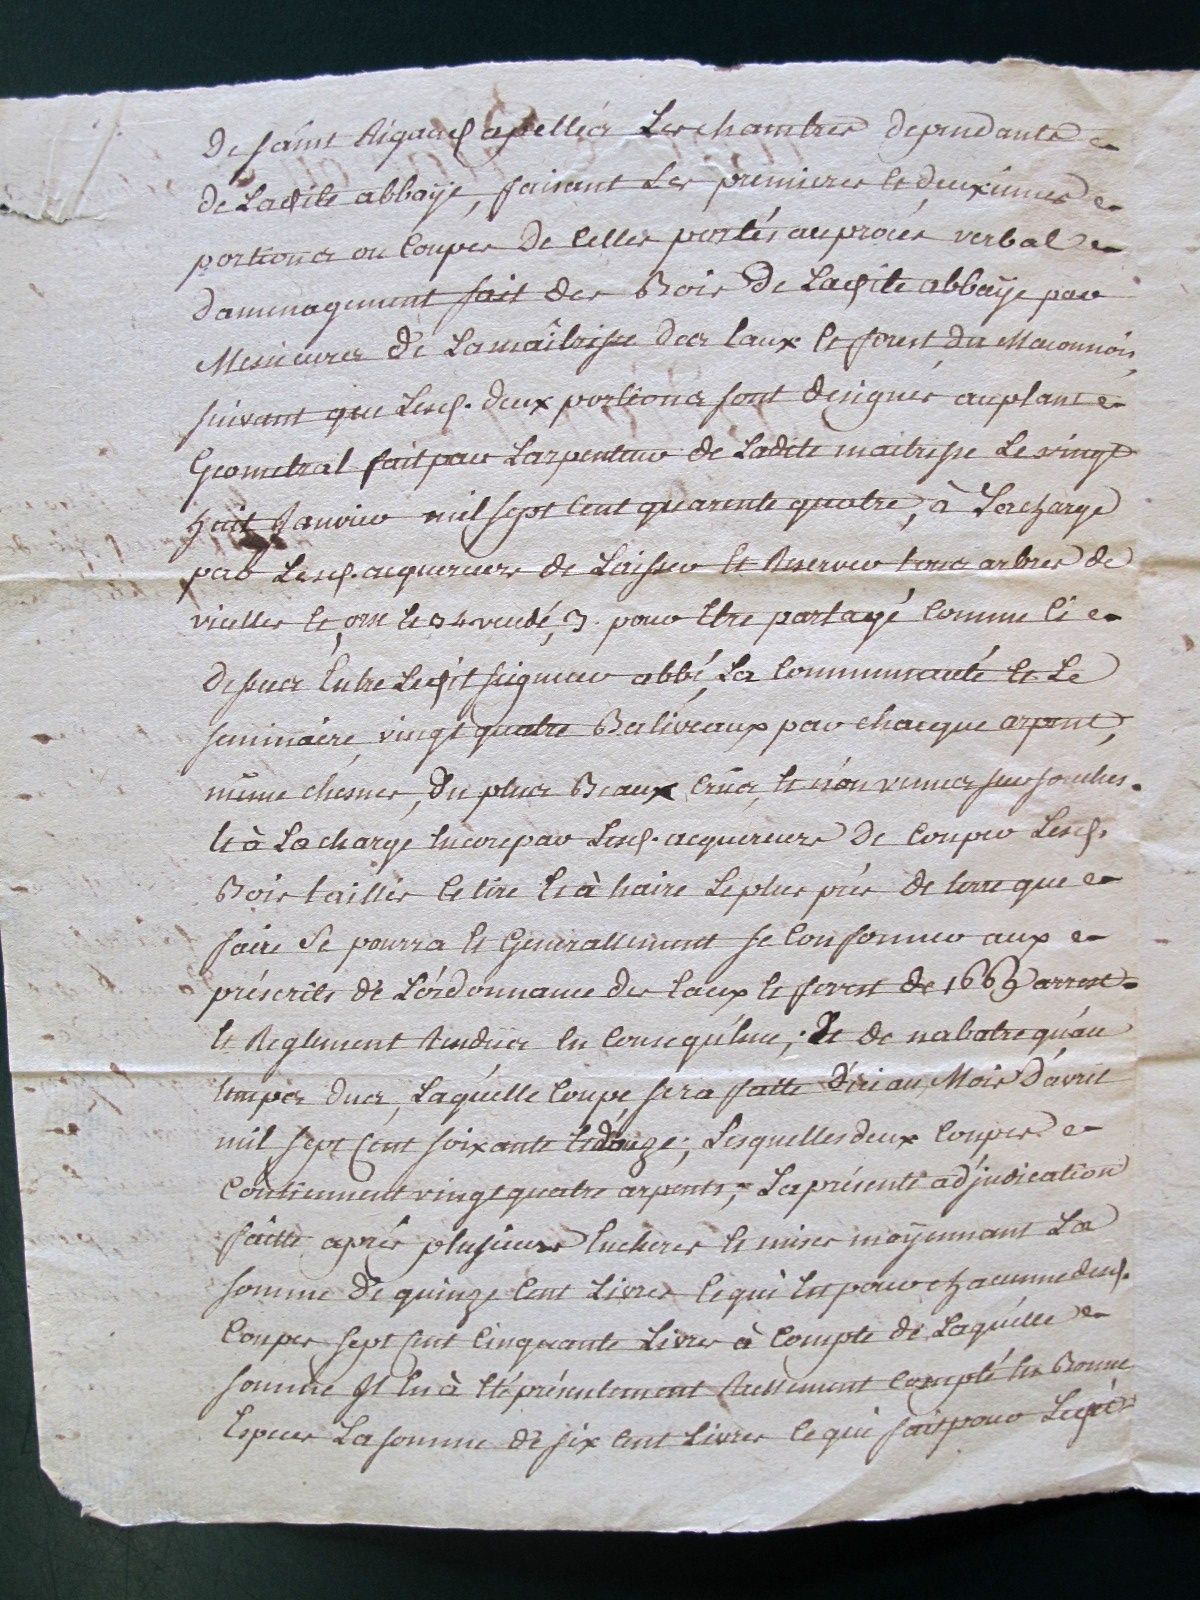 De saint Rigaud apellés Les chambres dependants
de Ladite abbaÿe, faisant Les premieres et deuxiemes
portions ou Coupes De Celles portés au procés verbal
damenagement fait des Bois De Ladite abbaÿe par
Messieurs de La maîtrisse des Eaux et forest du Maconnois
suivant que Lesd. deux portions sont designés au plant
Geometral fait par Larpenteur de Ladite maitrisse Le vingt
huit Janvier mil sept Cent quarente quatre, à La charge
par Lesd. acquereurs de Laisser et Reserver tous arbres de
vielles et pour Etre partagé Comme Ci
dessus Entre Ledit seigneur abbé, La Communauté et Le
seminaire, vingt quatre Baliveaux par chacque arpent,
même chesnes, Du plus Beaux Crûs, et non venus sur souches.
et à La charge Encore par Lesd. acquereurs De Couper Lesd.
Bois taillis et tire et à haire Le plus prés de terre que
faire Se pourra et Generallement se Conformer aux
préscrits de L'ordonnance des Eaux et forest de 1669 arrest
et Reglement Rendus En Consequ'ence; Et de nabatre qu'au
temps dus, Laquelle Coupe sera faitte D'ici au Mois D'avril
mil sept Cent soixante et douze; Lesquelles deux Coupes
Contiennent vingt quatre arpents; La présente adjudication
faitte aprés plusieurs Encheres et mises moÿennant La
somme De quinze Cent Livres Ce qui Est pour chacunne desd.
Coupes sept Cent Cinquante Livres à Compte de Laquelle
somme Il En à Eté présentement Reellement Compté En Bonne
Especes La somme de six Cent Livres Ce qui fait pour Ledit